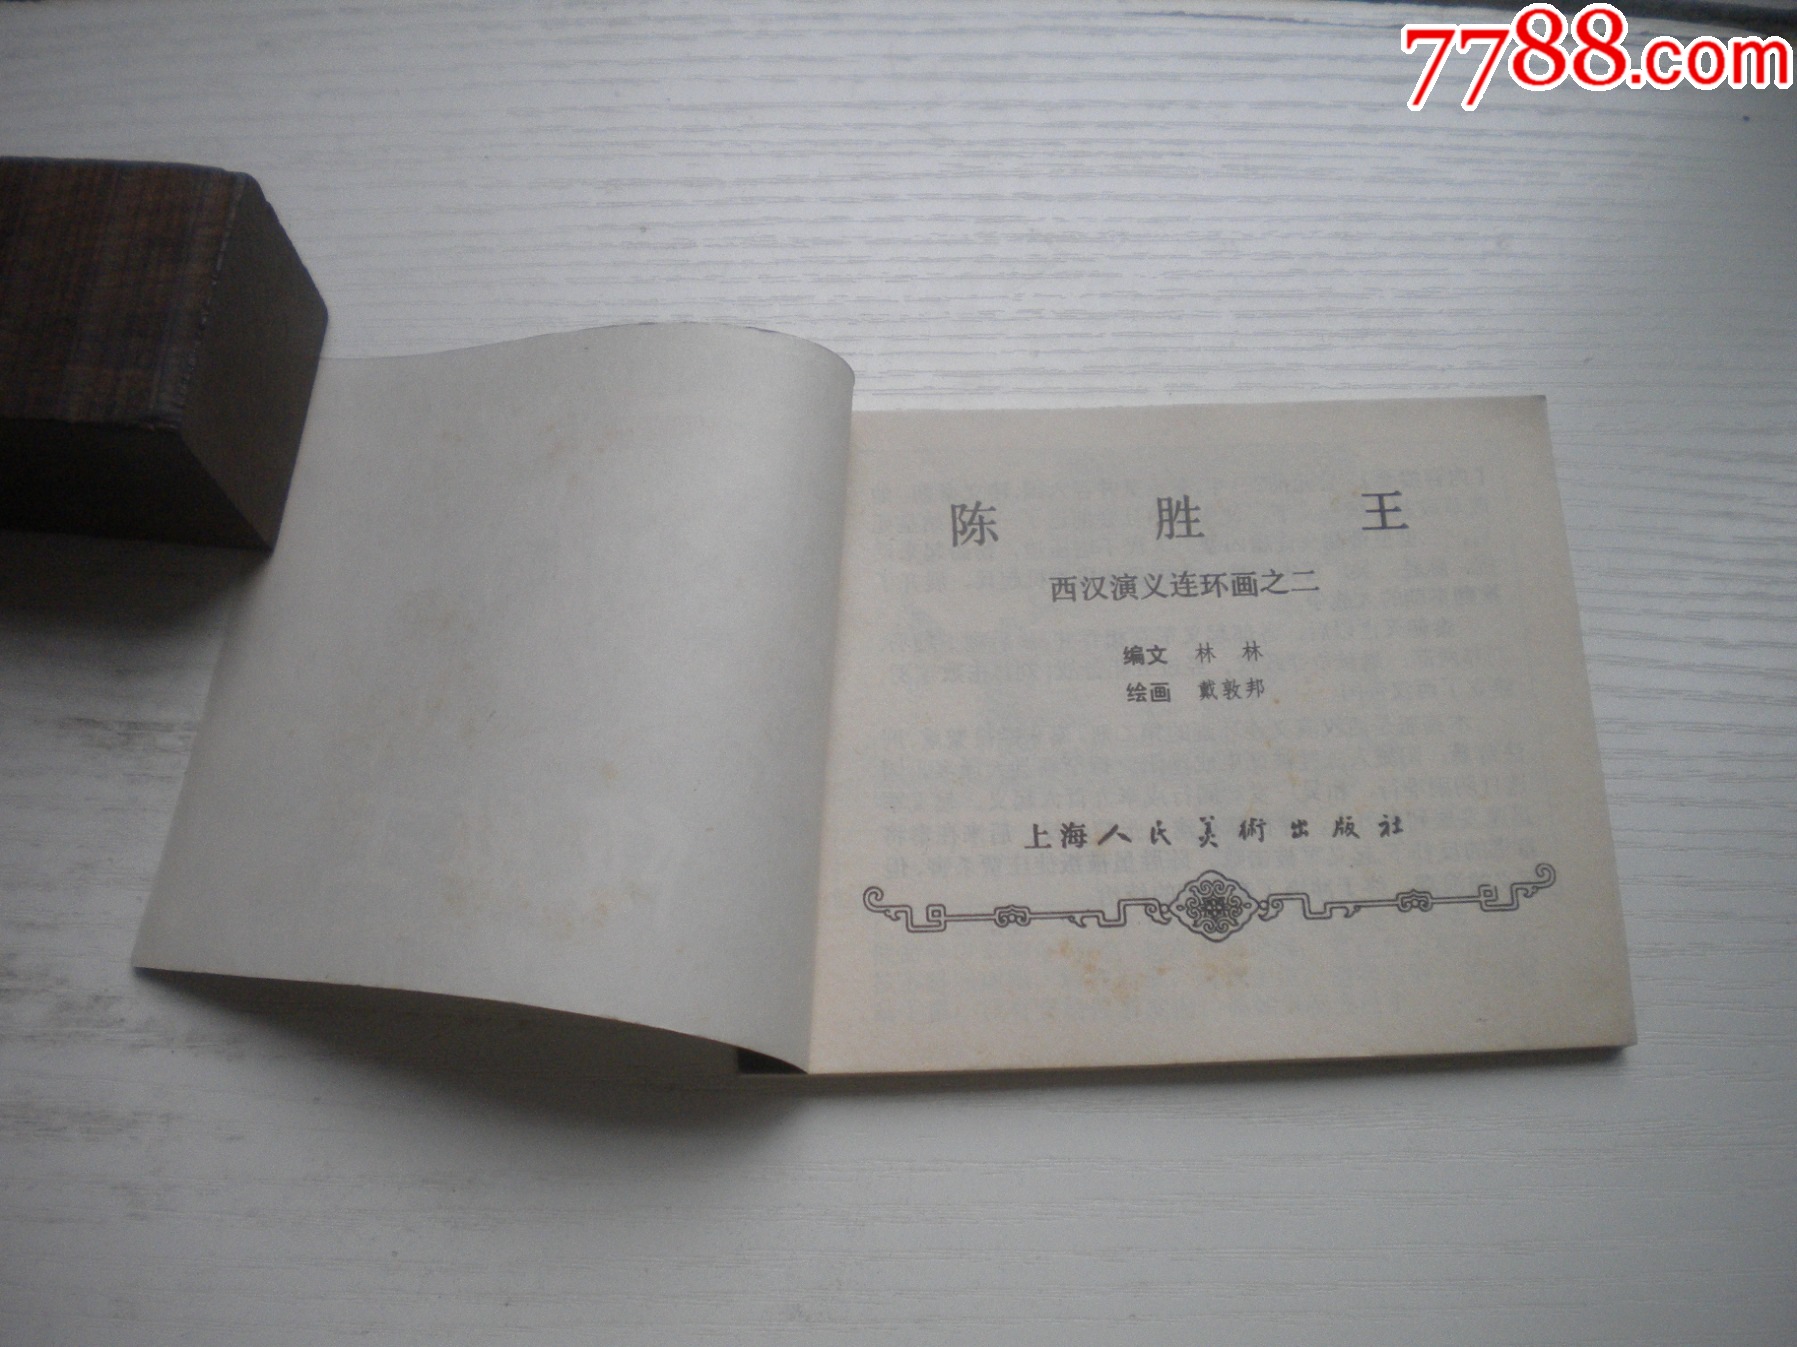 7788.com
陈胜王
西汉演义连环画之二
编文 林林
绘画 戴敦邦
上海人民美術出版社